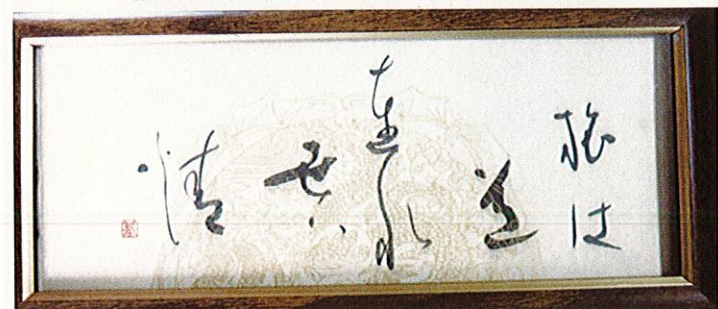 旅は
道
連れ
世ハ
情